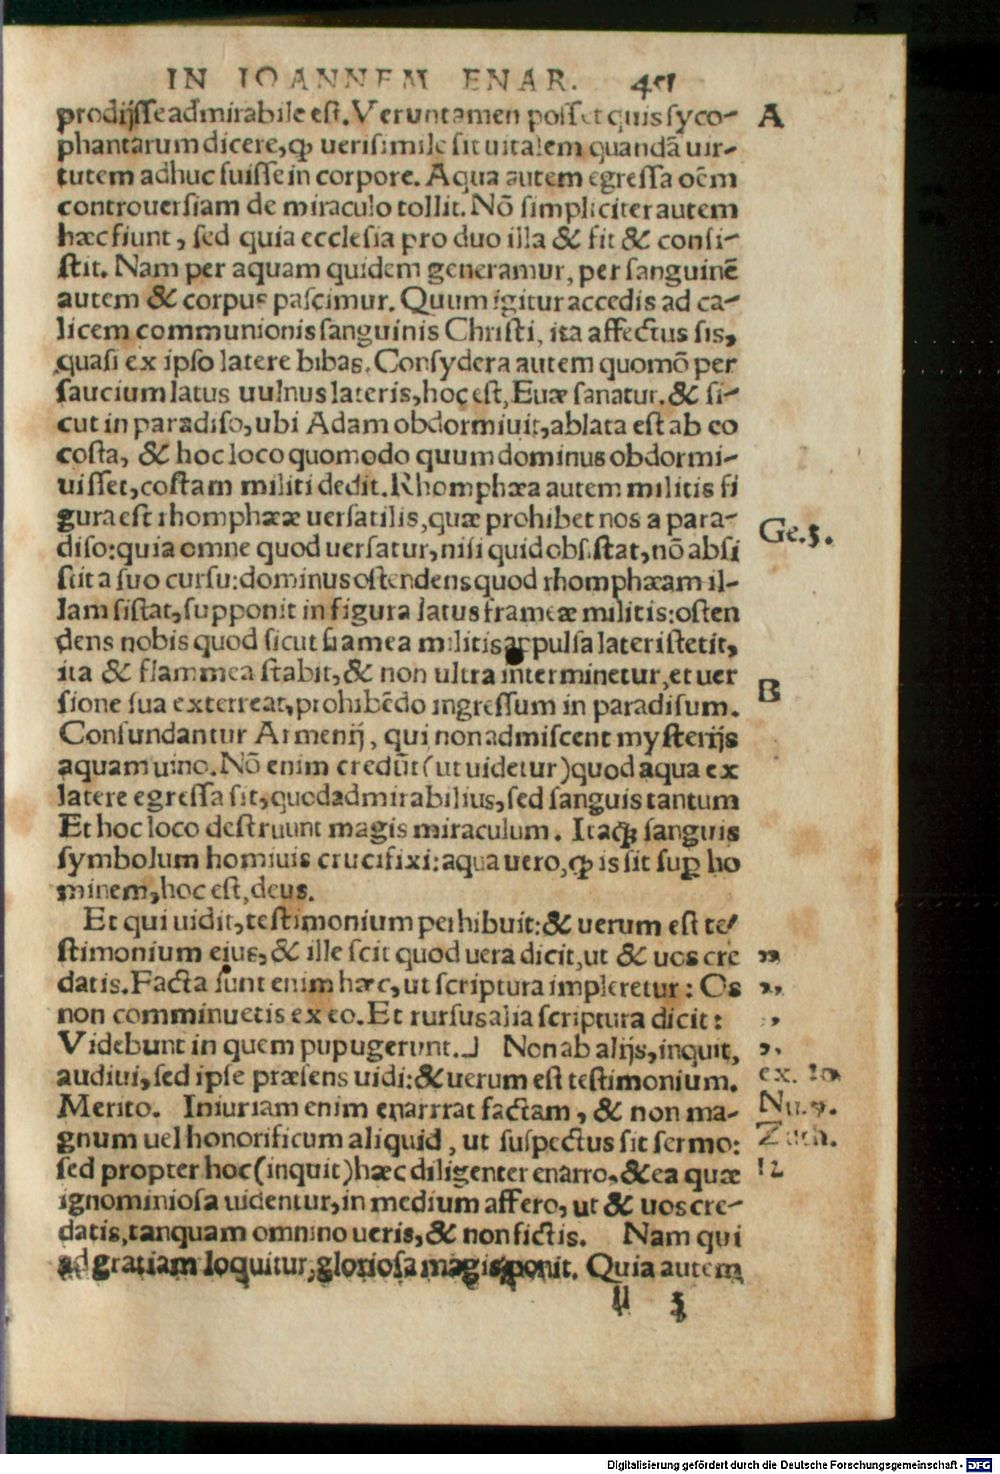 IN IOANNEM ENAR. 451
prodijsse admirabile est. Veruntamen posset quis syco- A
phantarum dicere, ꝙ uerisimile sit uitalem quandã uir-
tutem adhuc fuisse in corpore. Aqua autem egressa oẽm
controuersiam de miraculo tollit. Nõ simpliciter autem
hæc fiunt, sed quia ecclesia pro duo illa & fit & consi-
stit. Nam per aquam quidem generamur, per sanguinẽ
autem & corpus pascimur. Quum igitur accedis ad ca-
licem communionis sanguinis Christi, ita affectus sis,
quasi ex ipso latere bibas. Consydera autem quomõ per
saucium latus uulnus lateris, hoc est, Euæ sanatur. & si-
cut in paradiso, ubi Adam obdormiuit, ablata est ab eo
costa, & hoc loco quomodo quum dominus obdormi-
uisset, costam militi dedit. Rhomphæa autem militis fi
gura est rhomphææ uersatilis, quæ prohibet nos a para- Ge.3.
diso: quia omne quod uersatur, nisi quid obsistat, nõ absi
stit a suo cursu: dominus ostendens quod rhomphæam il-
lam sistat, supponit in figura latus frameæ militis: osten
dens nobis quod sicut framea militis appulsa lateri stetit,
ita & flammea stabit, & non ultra interminetur, et uer
sione sua exterreat, prohibẽdo ingressum in paradisum. B
Confundantur Armenij, qui non admiscent mysterijs
aquam uino. Nõ enim credũt (ut uidetur) quod aqua ex
latere egressa sit, quod admirabilius, sed sanguis tantum
Et hoc loco destruunt magis miraculum. Itaqꝫ sanguis
symbolum homiuis crucifixi: aqua uero, ꝙ is sit sup̱ ho
minem, hoc est, deus.
Et qui uidit, testimonium perhibuit: & uerum est te-
stimonium eius, & ille scit quod uera dicit, ut & uos cre ,,
datis. Facta sunt enim hæc, ut scriptura impleretur: Os ,,
non comminuetis ex eo. Et rursus alia scriptura dicit: ,
Videbunt in quem pupugerunt.⅃ Non ab alijs, inquit, ,,
audiui, sed ipse præsens uidi: & uerum est testimonium. ex.
Merito. Iniuriam enim enarrrat factam, & non ma- Nu.9.
gnum uel honorificum aliquid, ut suspectus sit sermo: Zach.
sed propter hoc (inquit) hæc diligenter enarro, & ea quæ 12
ignominiosa uidentur, in medium affero, ut & uos cre-
datis, tanquam omnino ueris, & non fictis. Nam qui
ad gratiam loquitur, gloriosa magis ponit. Quia autem
3
Digitalisierung gefördert durch die Deutsche Forschungsgemeinschaft - DFG